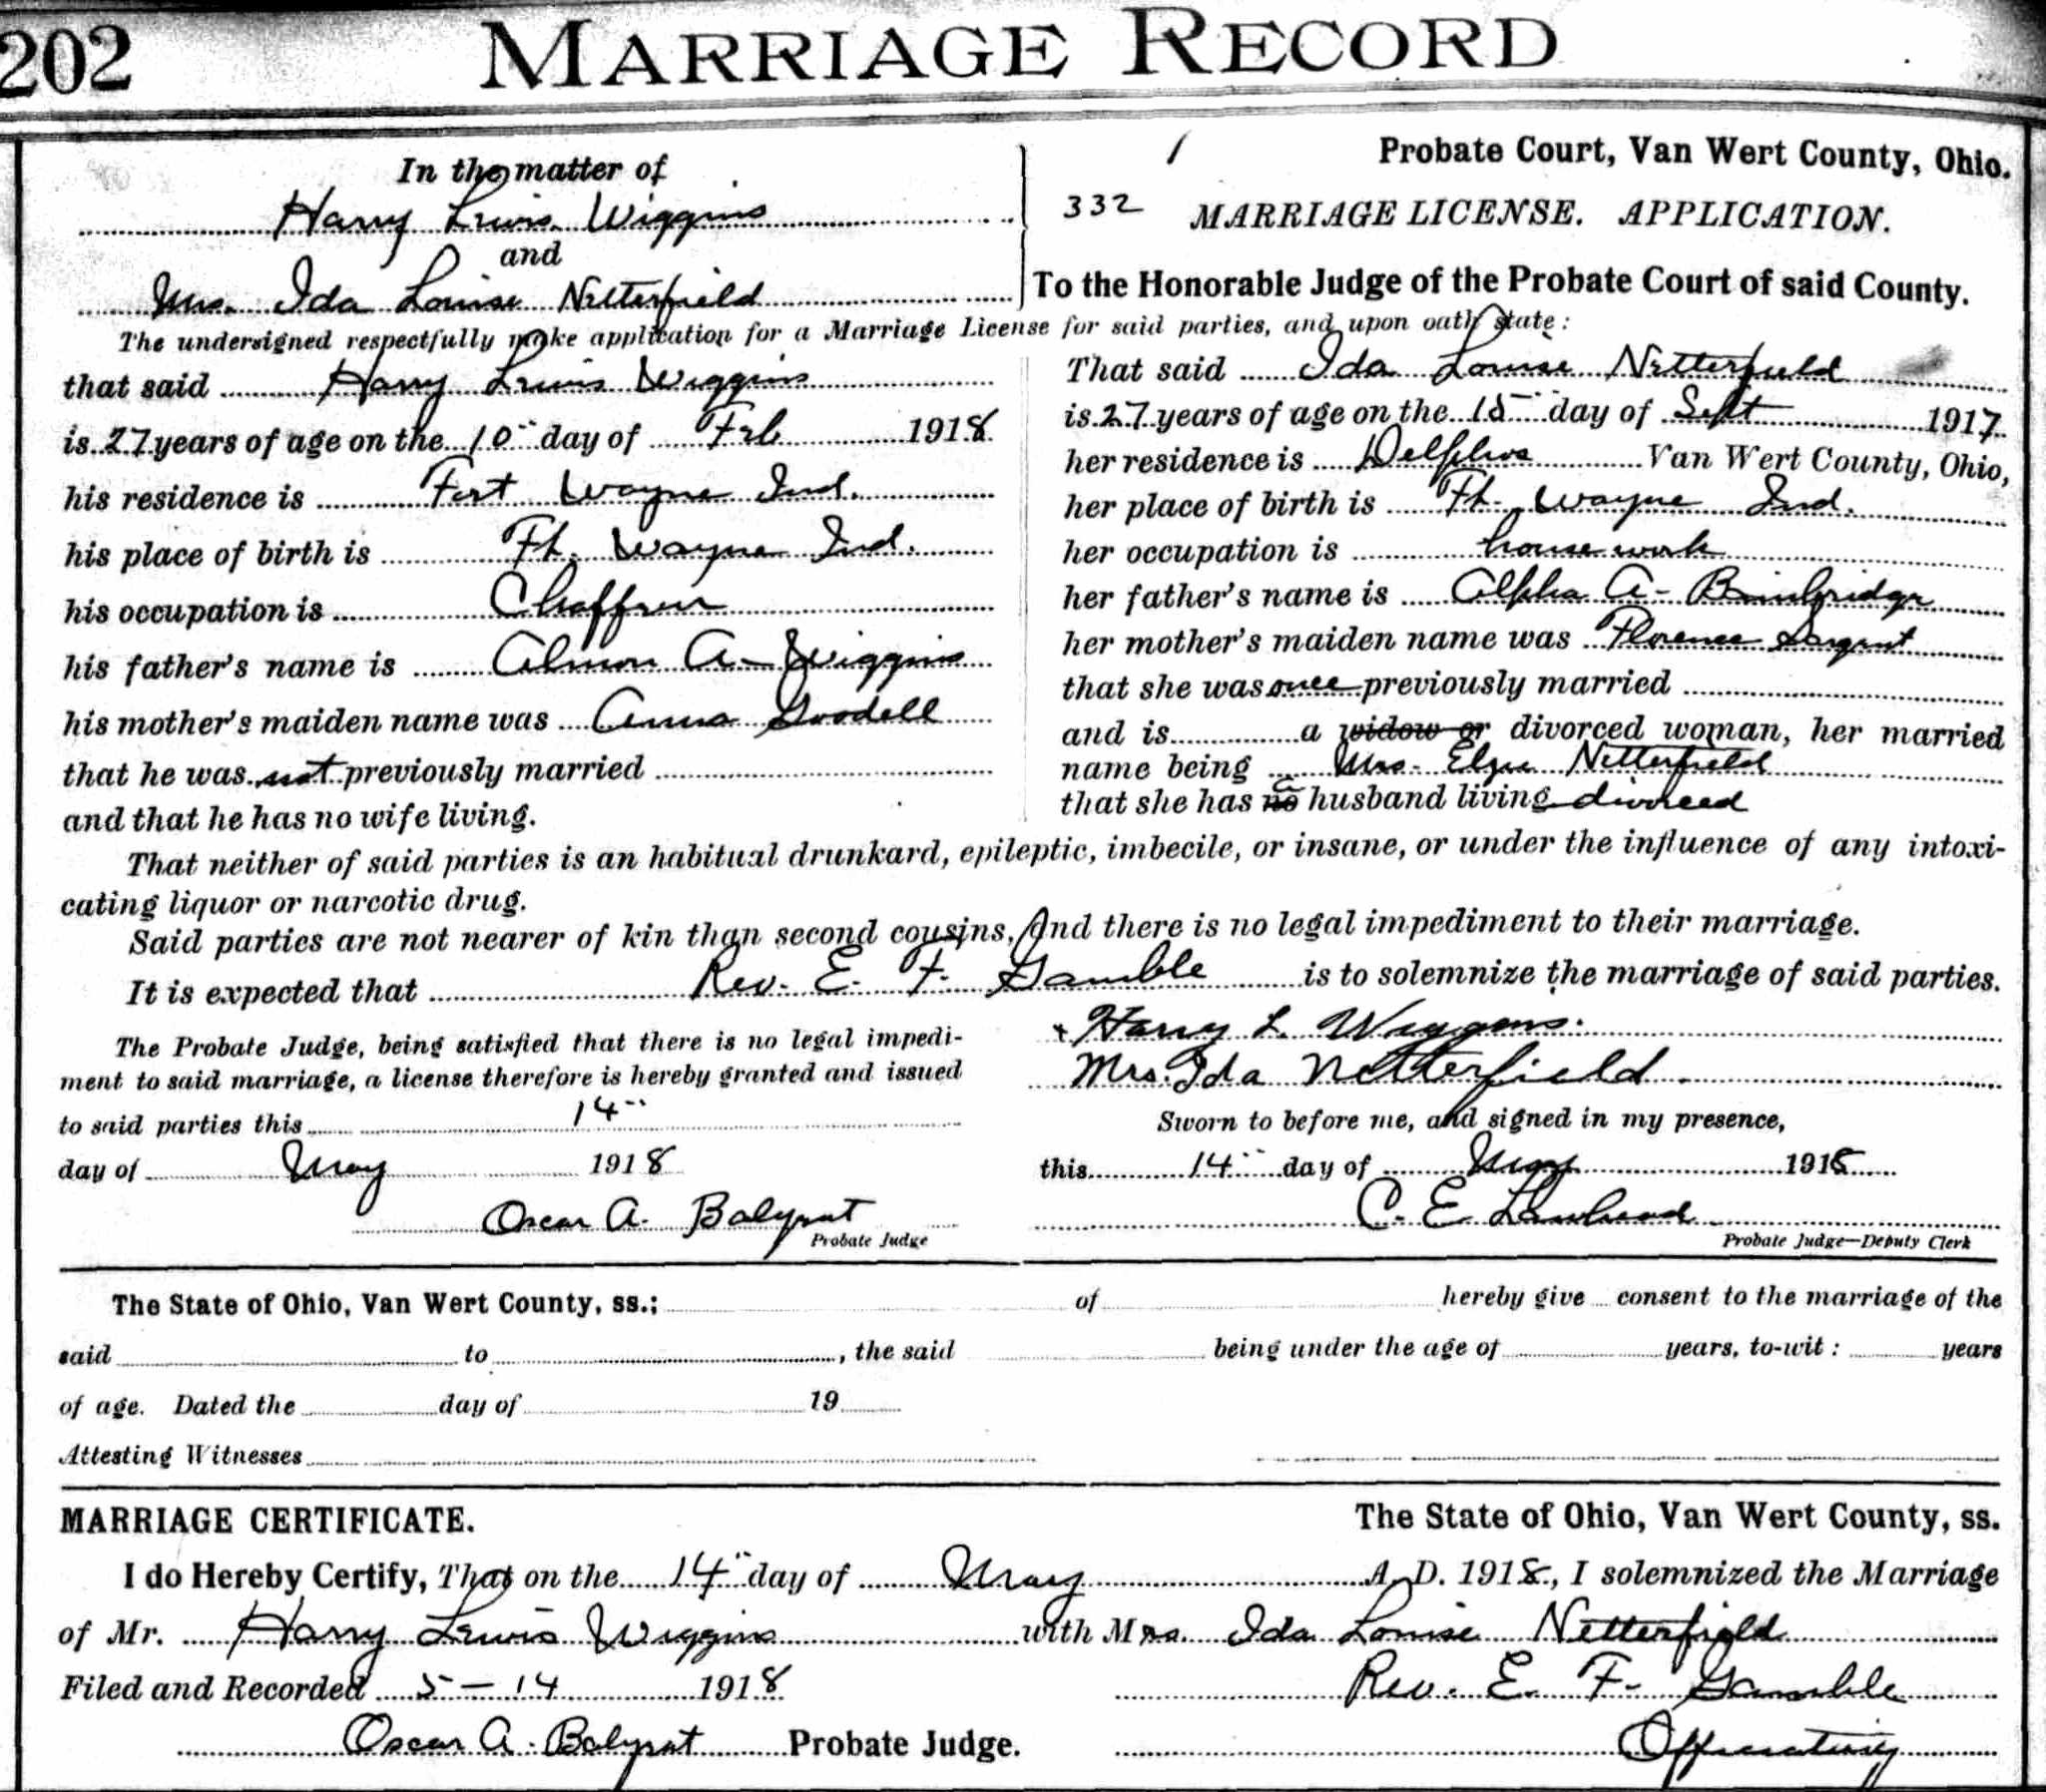 202 MARRIAGE RECORD
In the matter of
Harry Lewis Wiggins
and
Mrs. Ida Louise Netterfield
1 Probate Court, Van Wert County, Ohio.
332 MARRIAGE LICENSE. APPLICATION.
To the Honorable Judge of the Probate Court of said County.
The undersigned respectfully make application for a Marriage License for said parties, and upon oath state:
that said Harry Lewis Wiggins
is 27 years of age on the 10" day of Feb 1918
his residence is Fort Wayne Ind.
his place of birth is Ft. Wayne Ind.
his occupation is
his father's name is Almon A. Wiggins
his mother's maiden name was Anna Goodell
that he was not previously married
and that he has no wife living.
That said Ida Louise Netterfield
is 27 years of age on the 15" day of Sept 1917
her residence is Delphos Van Wert County, Ohio,
her place of birth is Ft. Wayne Ind.
her occupation is housework
her father's name is Alpha A- Bainbridge
her mother's maiden name was Florence Sargent
that she was once previously married
and is a widow or divorced woman, her married
name being Mrs. Elzie Netterfield
that she has no a husband living divorced
That neither of said parties is an habitual drunkard, epileptic, imbecile, or insane, or under the influence of any intoxi-
cating liquor or narcotic drug.
Said parties are not nearer of kin than second cousins, And there is no legal impediment to their marriage.
It is expected that Rev. E. F. Gamble is to solemnize the marriage of said parties.
The Probate Judge, being satisfied that there is no legal impedi-
ment to said marriage, a license therefore is hereby granted and issued
to said parties this 14"
day of May 1918
Oscar A.
Probate Judge
x Harry L. Wiggins.
Mrs. Ida Netterfield
Sworn to before me, and signed in my presence,
this 14" day of May 1918
C. E. Lawhead
Probate Judge—Deputy Clerk
The State of Ohio, Van Wert County, ss.; of hereby give consent to the marriage of the
said to , the said being under the age of years, to-wit: years
of age. Dated the day of 19
Attesting Witnesses
MARRIAGE CERTIFICATE. The State of Ohio, Van Wert County, ss.
I do Hereby Certify, That on the 14" day of May A. D. 1918, I solemnized the Marriage
of Mr. Harry Lewis Wiggins with Mrs. Ida Louise Netterfield
Filed and Recorded 5-14 1918 Rev. E. F. Gamble
Oscar A. Probate Judge. Officiating